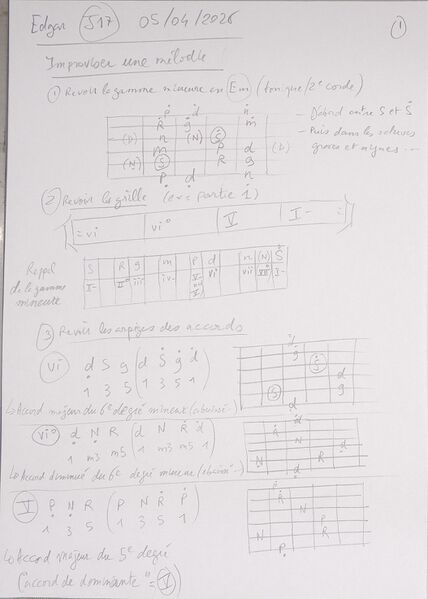 Edgar J17 05/04/2026 1
Improviser une mélodie
① Revoir la gamme mineure en Em (tonique/2e corde)
→ D'abord entre S et Ṡ
→ Puis dans les octaves
graves et aigues...
② Revoir la grille (ex: partie 1)
vi vi° V I-
Rappel
de la gamme
mineure
S R g m P d n (N) Ṡ
I- II° iii iv- V- vi vii VII° I-
③ Revoir les arpèges des accords
vi d S g (d Ṡ ġ ḋ
1 3 5 (1 3 5 1
↳ Accord majeur du 6e degré mineur
vi° d N R (d N Ṙ ḋ
1 m3 m5 (1 m3 m5 1
↳ Accord diminué du 6e degré mineur
V P N R (P N Ṙ Ṗ
1 3 5 (1 3 5 1
↳ Accord majeur du 5e degré
("accord de dominante" = V)